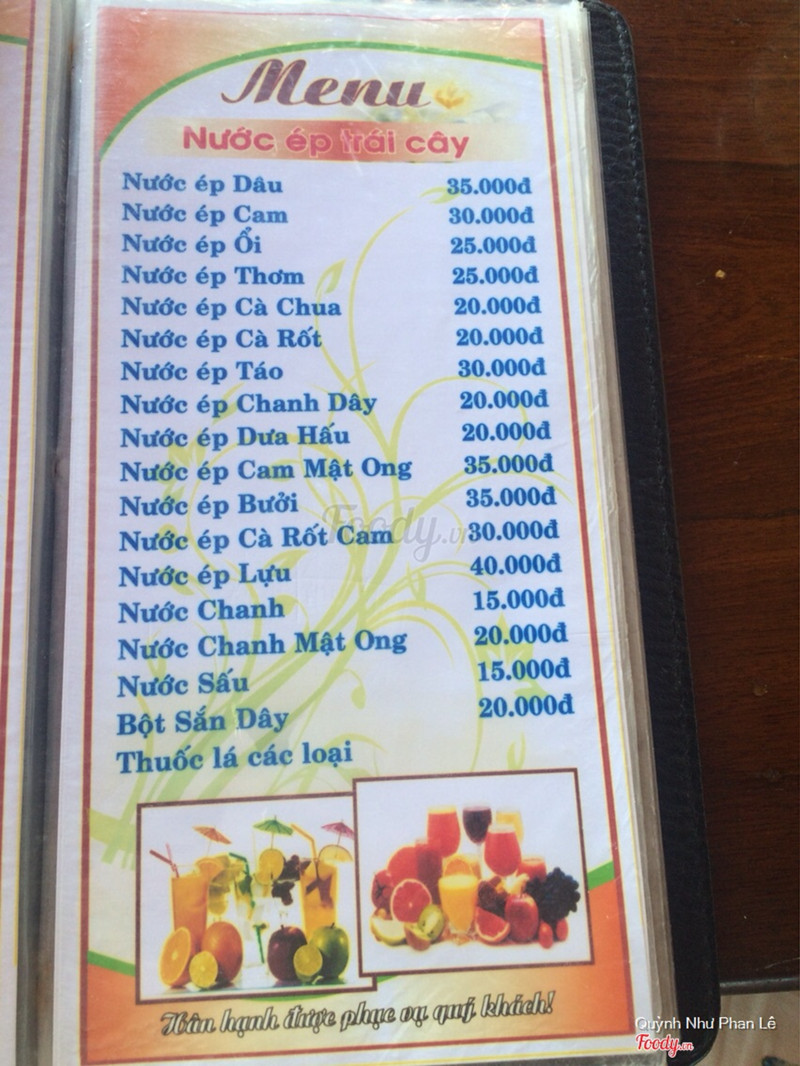 Menu
Nước ép trái cây
Nước ép Dâu 35.000đ
Nước ép Cam 30.000đ
Nước ép Ổi 25.000đ
Nước ép Thơm 25.000đ
Nước ép Cà Chua 20.000đ
Nước ép Cà Rốt 20.000đ
Nước ép Táo 30.000đ
Nước ép Chanh Dây 20.000đ
Nước ép Dưa Hấu 20.000đ
Nước ép Cam Mật Ong 35.000đ
Nước ép Bưởi 35.000đ
Nước ép Cà Rốt Cam 30.000đ
Nước ép Lựu 40.000đ
Nước Chanh 15.000đ
Nước Chanh Mật Ong 20.000đ
Nước Sấu 15.000đ
Bột Sắn Dây 20.000đ
Thuốc lá các loại
Foody.vn
Hân hạnh được phục vụ quý khách!
Quỳnh Như Phan Lê
Foody.vn